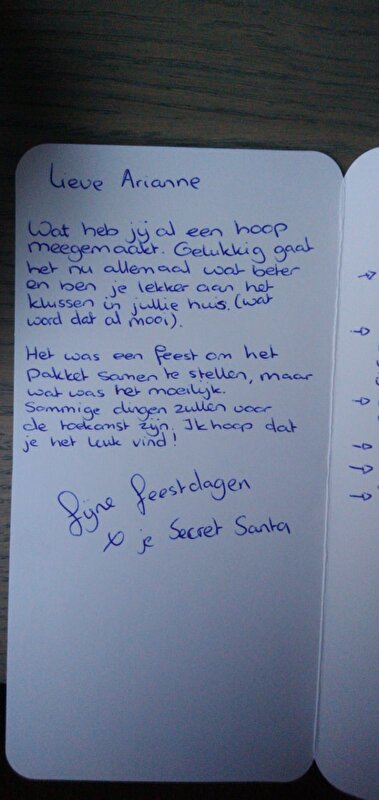 Lieve Arianne
Wat heb jij al een hoop
meegemaakt. Gelukkig gaat
het nu allemaal wat beter
en ben je lekker aan het
klussen in jullie huis. (wat
word dat al mooi).
Het was een feest om het
pakket samen te stellen, maar
wat was het moeilijk.
Sommige dingen zullen voor
de toekomst zijn. Ik hoop dat
je het leuk vind!
Fijne feestdagen
x je Secret Santa